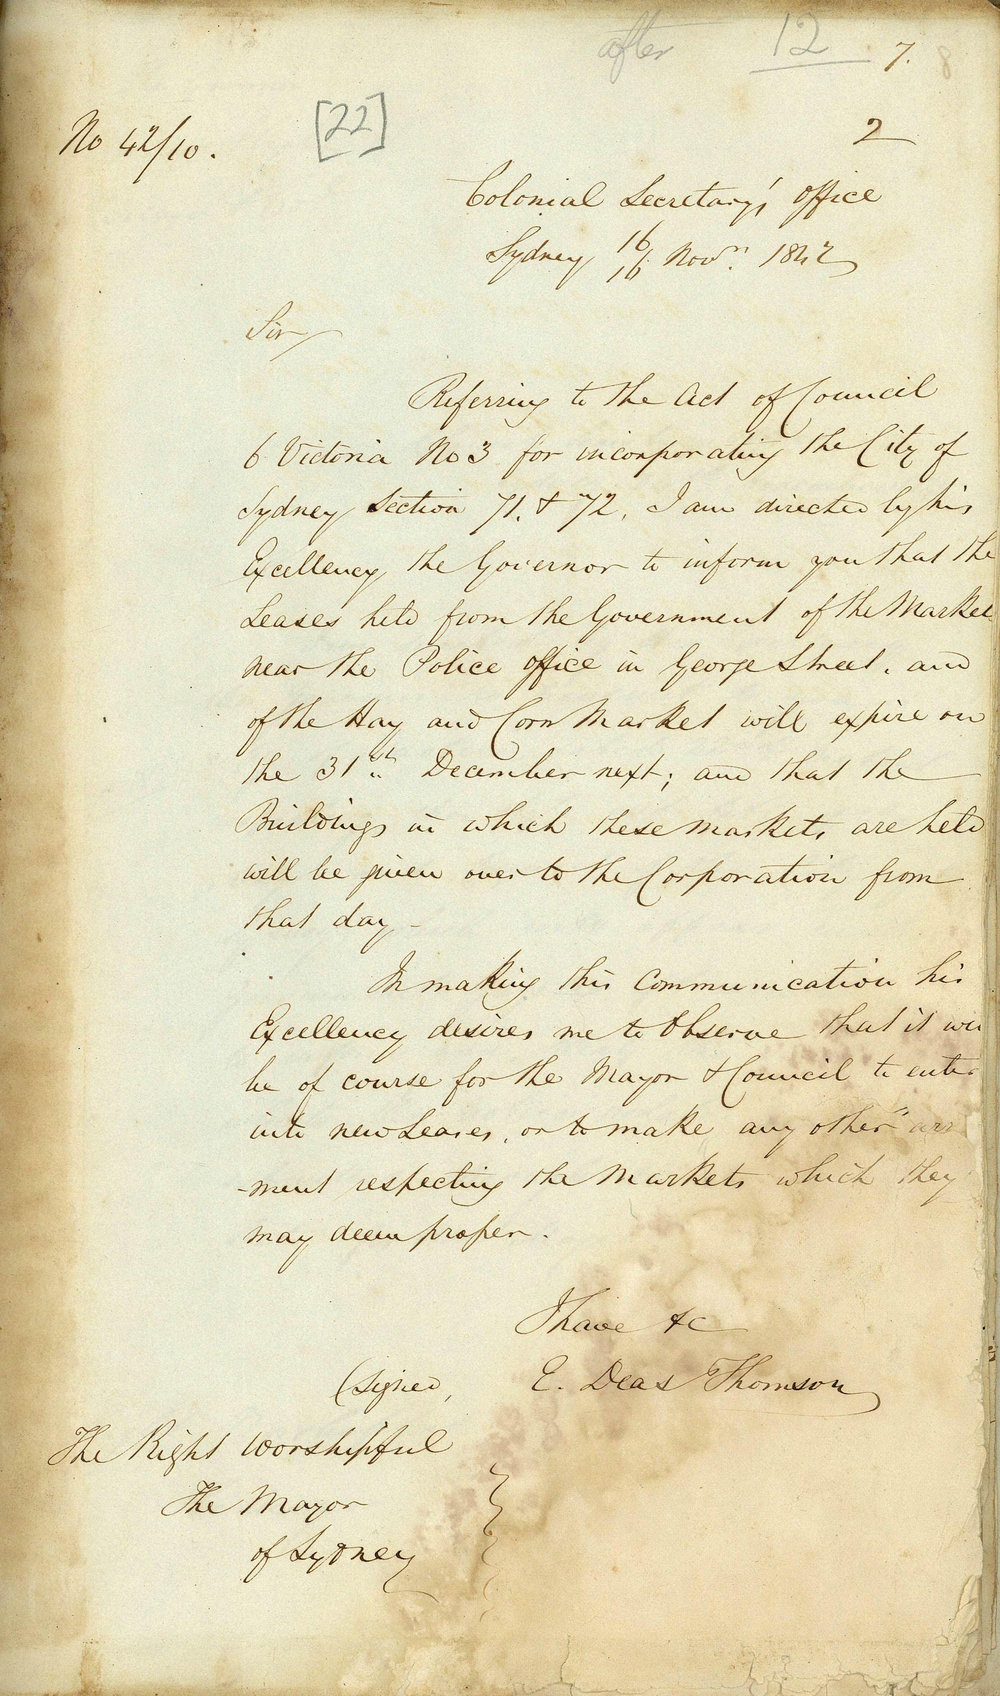 after 12 7. 8
No 42/10. [22] 2
Colonial Secretary's Office
Sydney 16/16 Novr. 1842
Sir
Referring to the Act of Council
6 Victoria No 3 for incorporating the City of
Sydney Section 71. & 72. I am directed by his
Excellency the Governor to inform you that the
Leases held from the Government of the Market
near the Police office in George Street. and
of the Hay and Corn Market will expire on
the 31st December next; and that the
Buildings in which these Markets are held
will be given over to the Corporation from
that day -
In making this Communication his
Excellency desires me to Observe that it wi
be of course for the Mayor & Council to enter
into new Leases, or to make any other arr
-ment respecting the Markets which they
may deem proper.
I have &c
(signed, E. Deas Thomson
The Right Worshipful
The Mayor
of Sydney